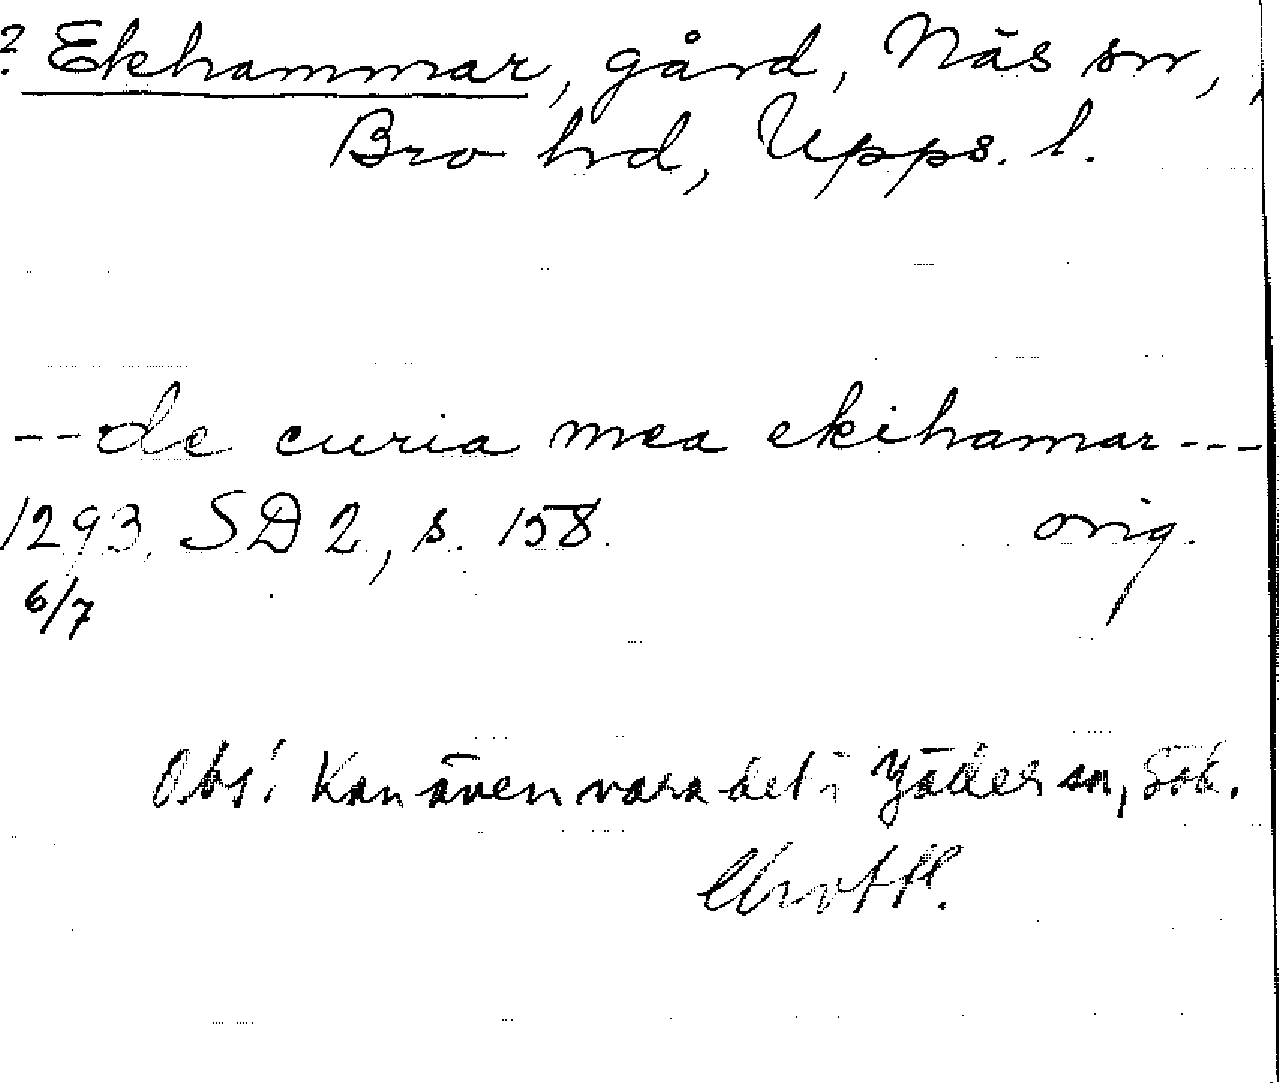 ? Ekhammar, gård, Näs sn,
Bro hd, Upps. l.
-- de curia mea ekihamar ---
1293, SD 2, s. 158. orig.
6/7
Obs! Kan även vara det i Jäder sn, Söd.